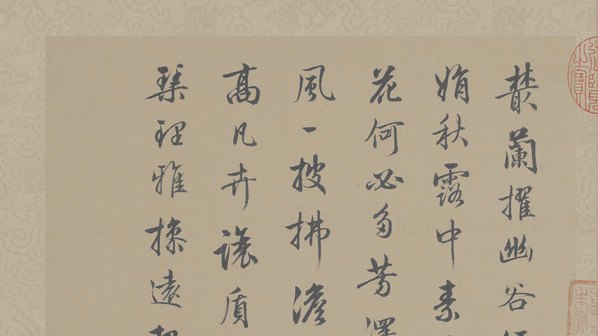 叢蘭擢幽谷
娟秋露中素
花何必多芳澤
風一披拂澹
高凡卉讓質
琹理雅操遠